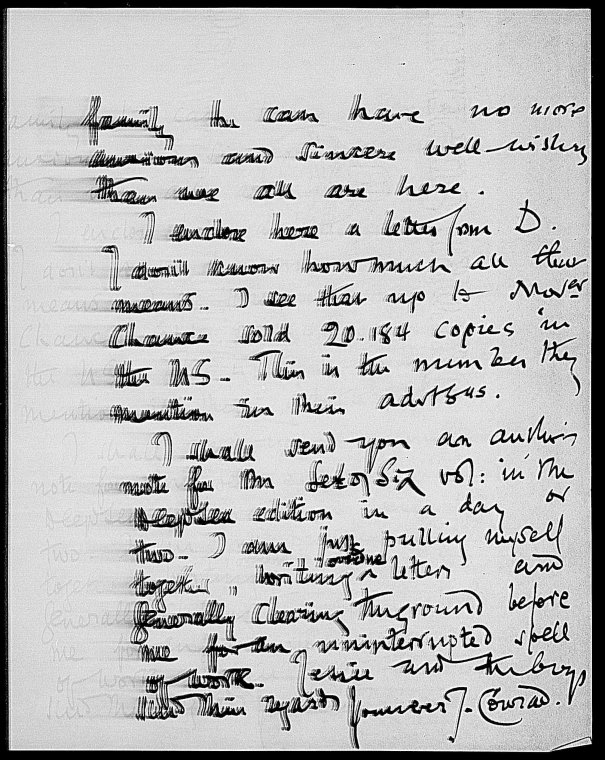 family he can have no more
anxious and sincere well-wishers
than we all are here.
I enclose here a letter from D.
I don't know how much all that
means. I see that up to Nov er
Chance sold 20.184 copies in
the US. This is the number they
mention in their advt
I shall send you an author's
note for the Set of Six vol: in the
Deepsea edition in a day or
two. I am just pulling myself
together, writing overdue letters and
generally clearing the ground before
me for an uninterrupted spell
of work. Jessie and the boys
send their regards Yours ever J. Conrad.